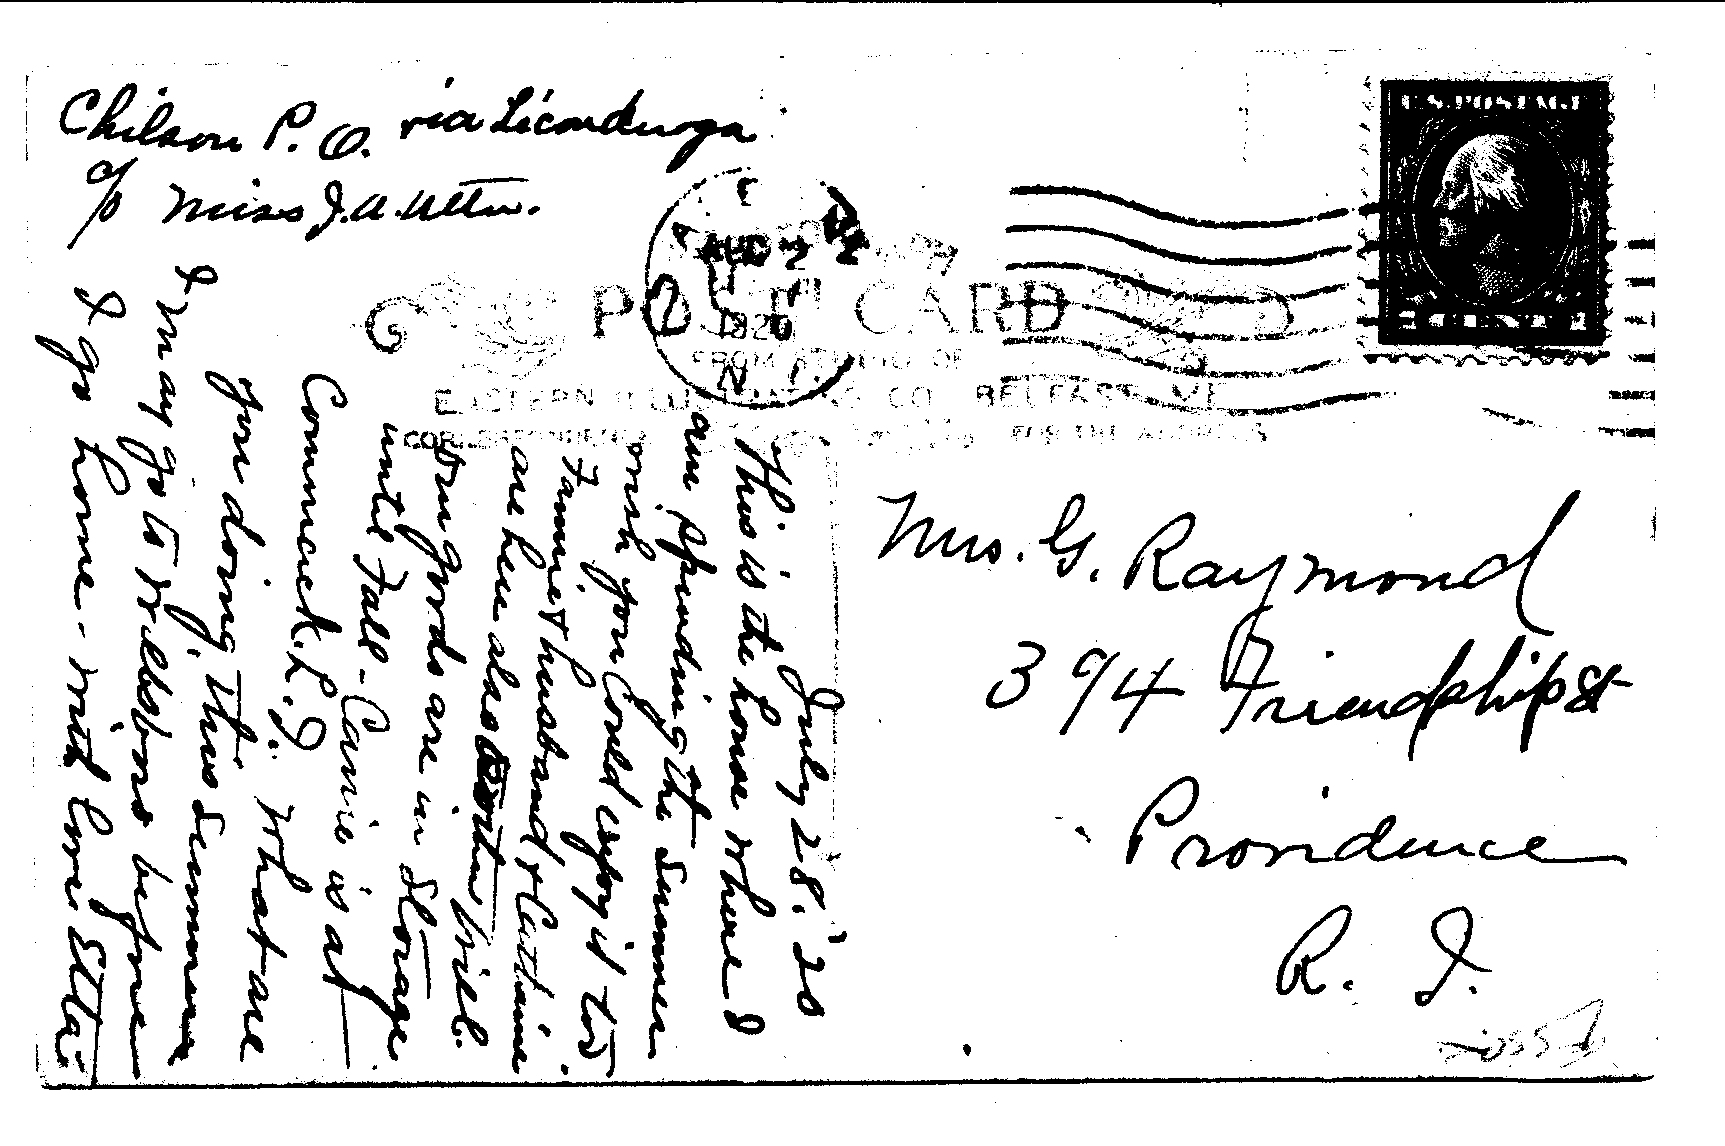 Chilson P. O. via Ticonderoga
c/o Miss J. A.
U.S. POSTAGE
AUG 2
1920
N. Y.
POST CARD
FROM STUDIO OF
EASTERN ILLUSTRATING CO. BELFAST, ME.
CORRESPONDENCE FOR THE ADDRESS
July 28, '20
This is the house where I
am spending the summer
wish you could enjoy it too
Fannie & husband &
are here also Will.
Our goods are in storage
until Fall - Carrie is at
Commack. L. I. What are
you doing this summer
I may go to before
I go home - with love Etta.
Mrs. G. Raymond
394 Friendship St
Providence
R. I.